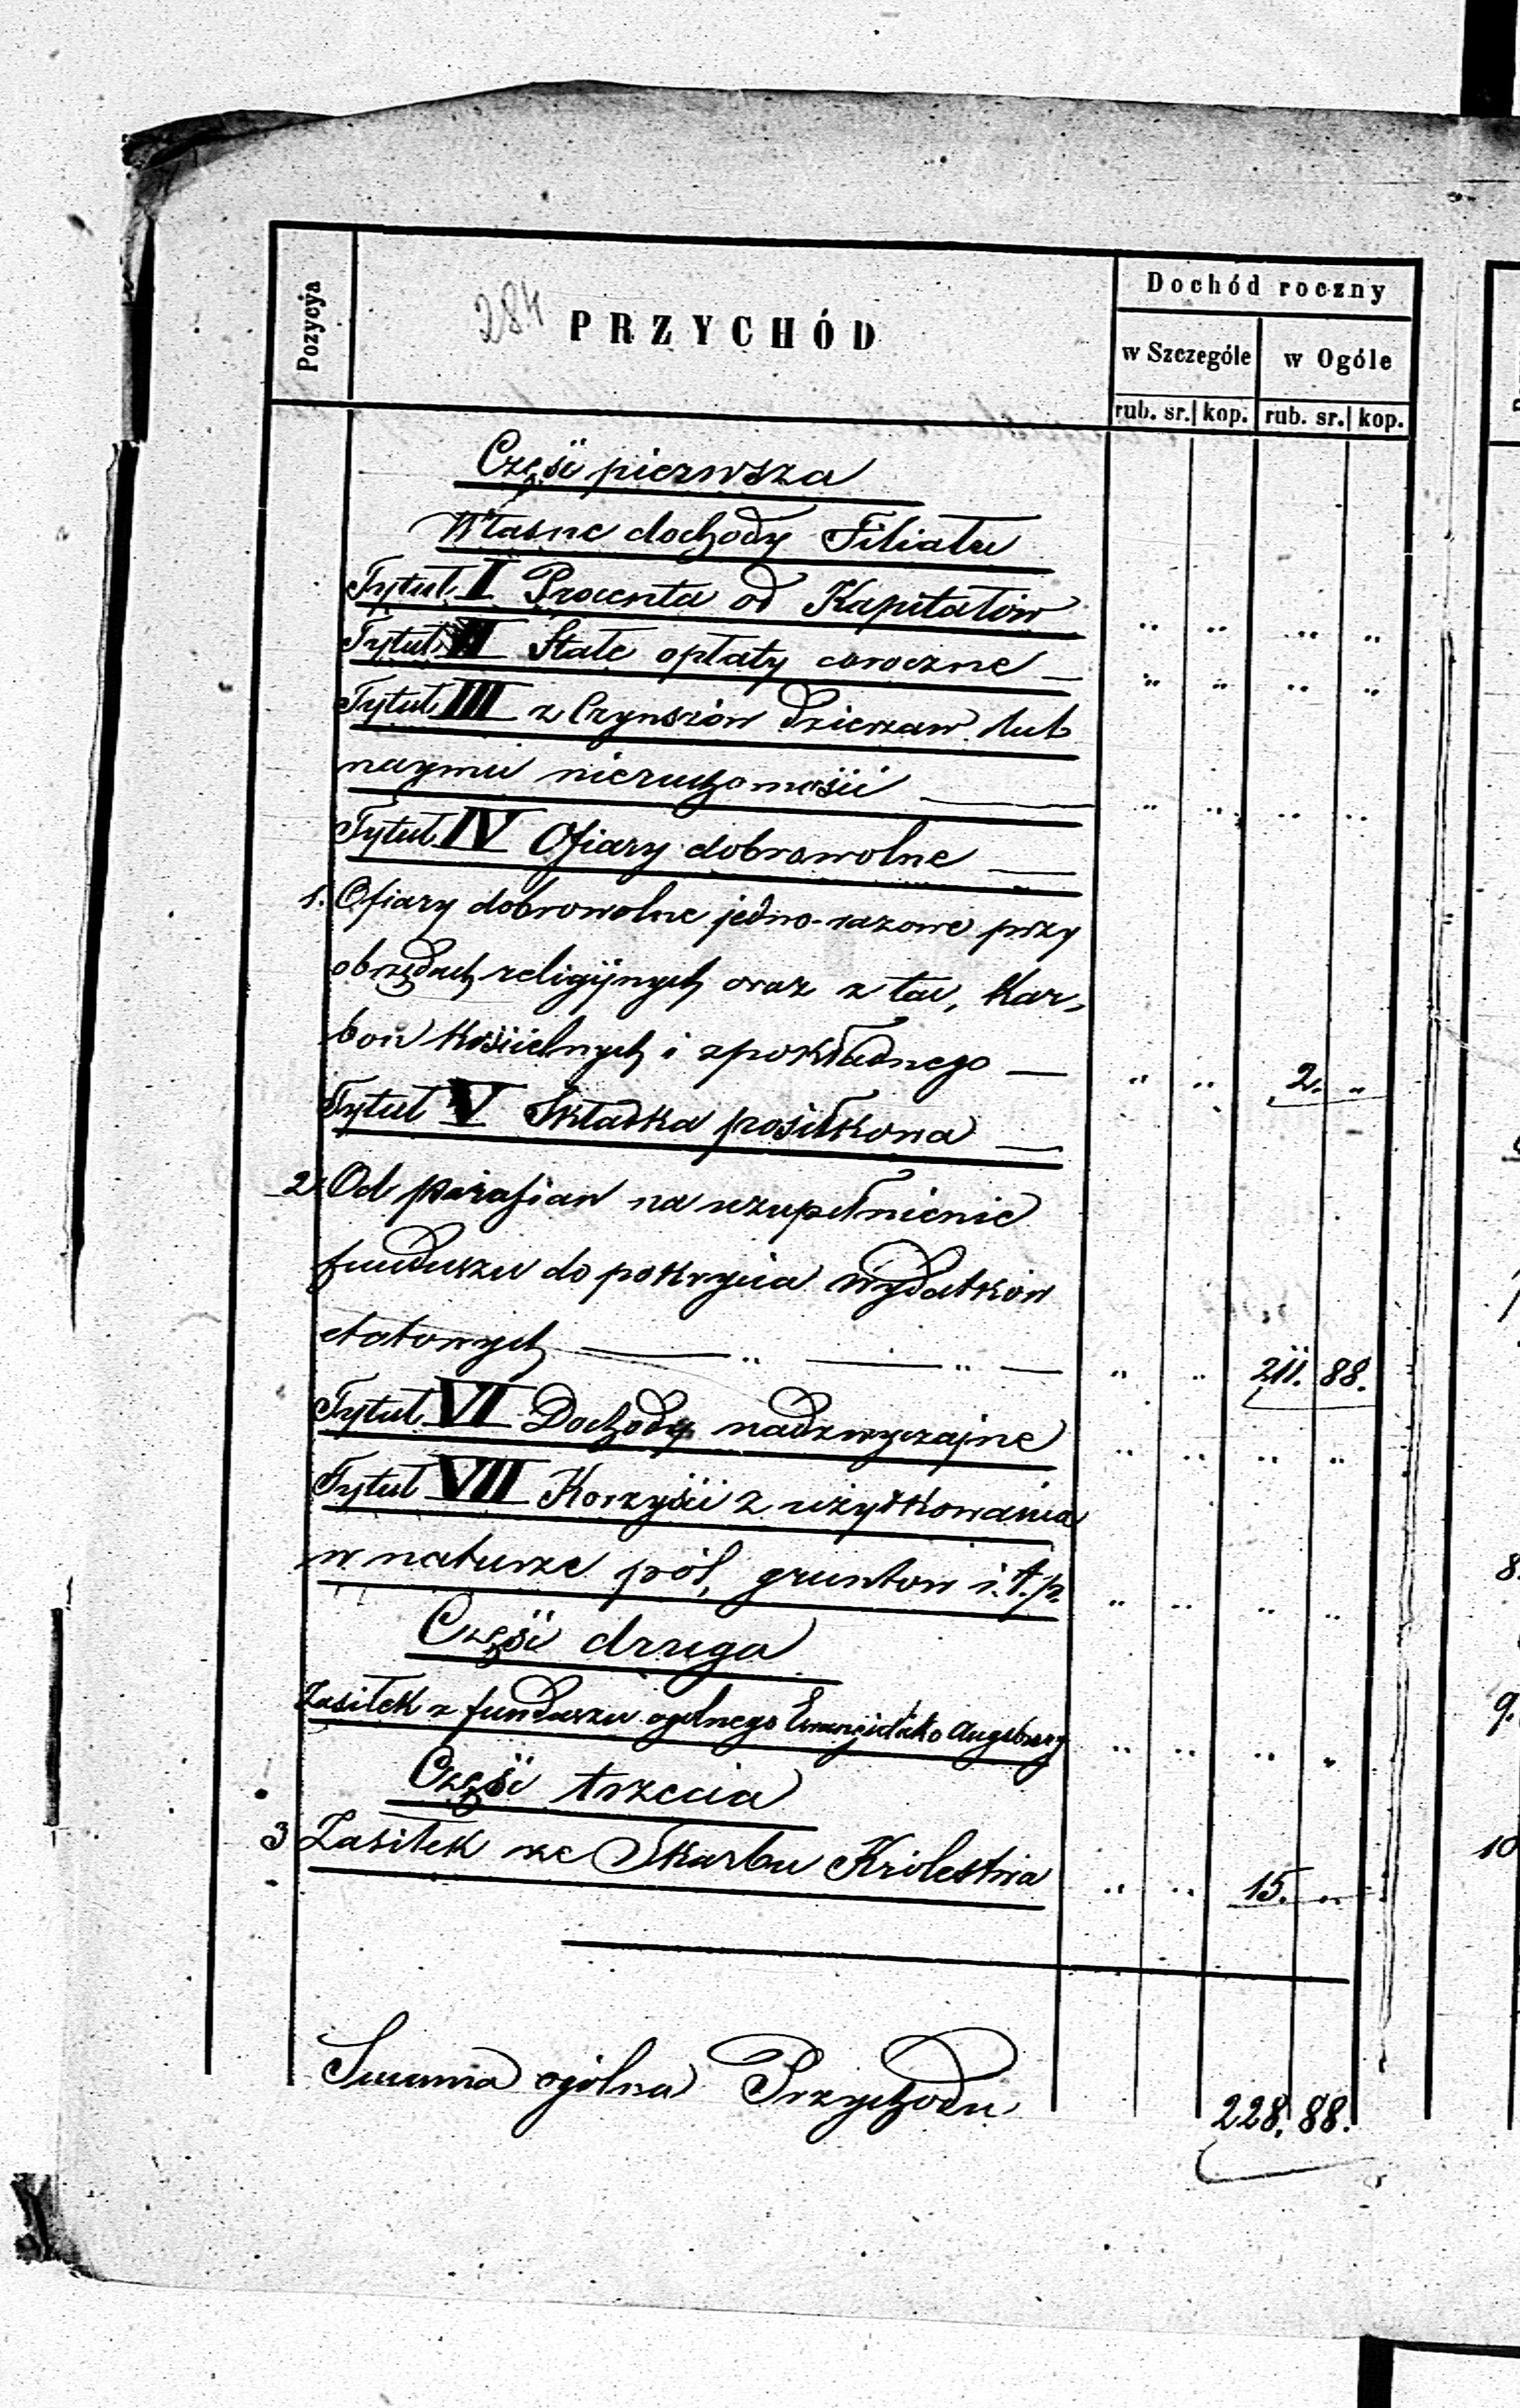 284
Pozycja
PRZYCHÓD
Dochód roczny
w Szczególe w Ogóle
rub. sr. kop. rub. sr. kop.
Część pierwsza
Własne dochody Filiału
Tytuł I Procenta od Kapitałów
Tytuł II Stałe opłaty coroczne —
Tytuł III z Czynszów dzierzaw lub
naymu nieruchomości —
Tytuł IV Ofiary dobrowolne —
1. Ofiary dobrowolne jedno-razowe przy
obrzędach religijnych oraz z tac, kar,
bon kościelnych i zpokładnego — 2. "
Tytuł V Składka posiłkowa —
2. Od parafian na uzupełnienie
funduszu do pokrycia wydatków
etatowych — " — " — 211. 88.
Tytuł VI Dochody nadzwyczajne
Tytuł VII Korzyści z użytkowania
w naturze pól, gruntow i.t.p.
Część druga
Zasiłek z funduszu ogolnego Augsburg
Część trzecia
3 Zasiłek ze Skarbu Królestwa 15. "
Summa ogólna Przychodu 228. 88.
8.
9.
10